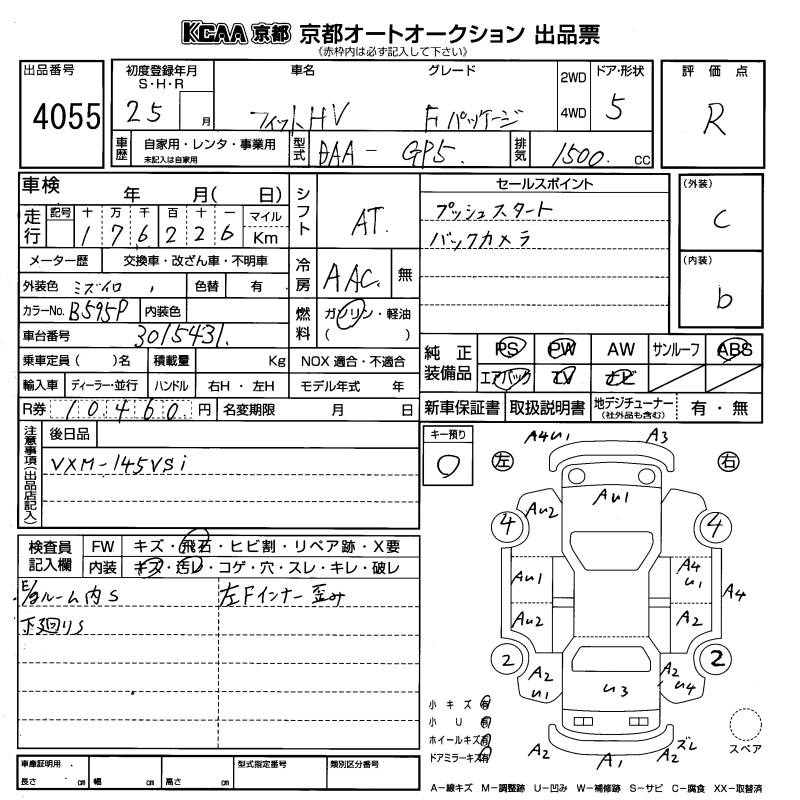 KCAA 京都 京都オートオークション 出品票
(赤枠内は必ず記入して下さい)
出品番号 4055
初度登録年月 S・H・R 25 月
車名 フィットHV
グレード Fパッケージ
2WD 4WD
ドア・形状 5
評価点 R
車歴 自家用・レンタ・事業用 未記入は自家用
型式 DAA-GP5.
排気 1500. CC
車検 年 月( 日)
シフト AT.
セールスポイント
プッシュスタート
バックカメラ
(外装) C
(内装) b
走行 記号 十 万 千 百 十 一 マイル Km
1 7 6 2 2 6
メーター歴 交換車・改ざん車・不明車
冷房 AAC. 無
外装色 ミズイロ 色替 有
カラーNo. B595P 内装色
燃料 ガソリン・軽油 ( )
車台番号 3015431.
乗車定員( )名 積載量 Kg NOX 適合・不適合
輸入車 ディーラー・並行 ハンドル 右H・左H モデル年式 年
R券 10460 円 名変期限 月 日
純正装備品 PS PW AW サンルーフ ABS
エアバック TV ナビ
新車保証書 取扱説明書 地デジチューナー (社外品も含む) 有・無
注意事項(出品店記入) 後日品
VXM-145VSi
キー預り ○
検査員記入欄 FW キズ・飛石・ヒビ割・リペア跡・X要
内装 キズ・汚レ・コゲ・穴・スレ・キレ・破レ
E/gルーム内S 左Fインナー歪み
下廻りS
左 右
A4U1 A3
AU1
AU2
4 4
AU1 A4U1 A4
AU2 A2
2 2
A2U1 U3 A2U4
A2 A1 A2ズレ
小キズ 有
小U 有
ホイールキズ 有
ドアミラーキズ 有
スペア
車庫証明用 長さ cm 幅 cm 高さ cm 型式指定番号 類別区分番号
A-線キズ M-調整跡 U-凹み W-補修跡 S-サビ C-腐食 XX-取替済